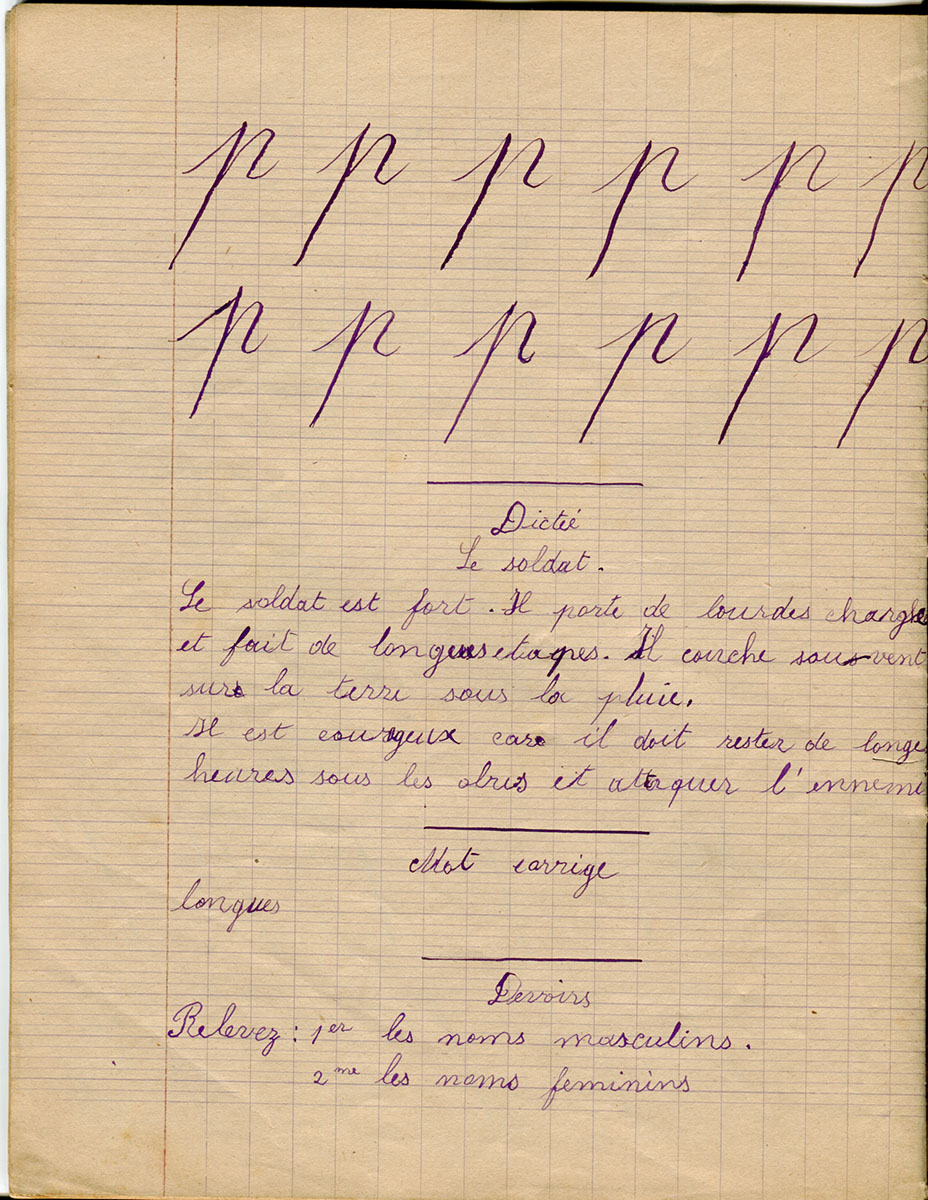 p p p p p p
p p p p p p
Dictée
Le soldat.
Le soldat est fort. Il porte de lourdes charges
et fait de longues etapes. Il couche souvent
sur la terre sous la pluie.
Il est courageux car il doit rester de longes
heures sous les obus et attaquer l'ennemi
Mot corrige
longues
Devoirs
Relevez : 1er les noms masculins.
2me les noms feminins